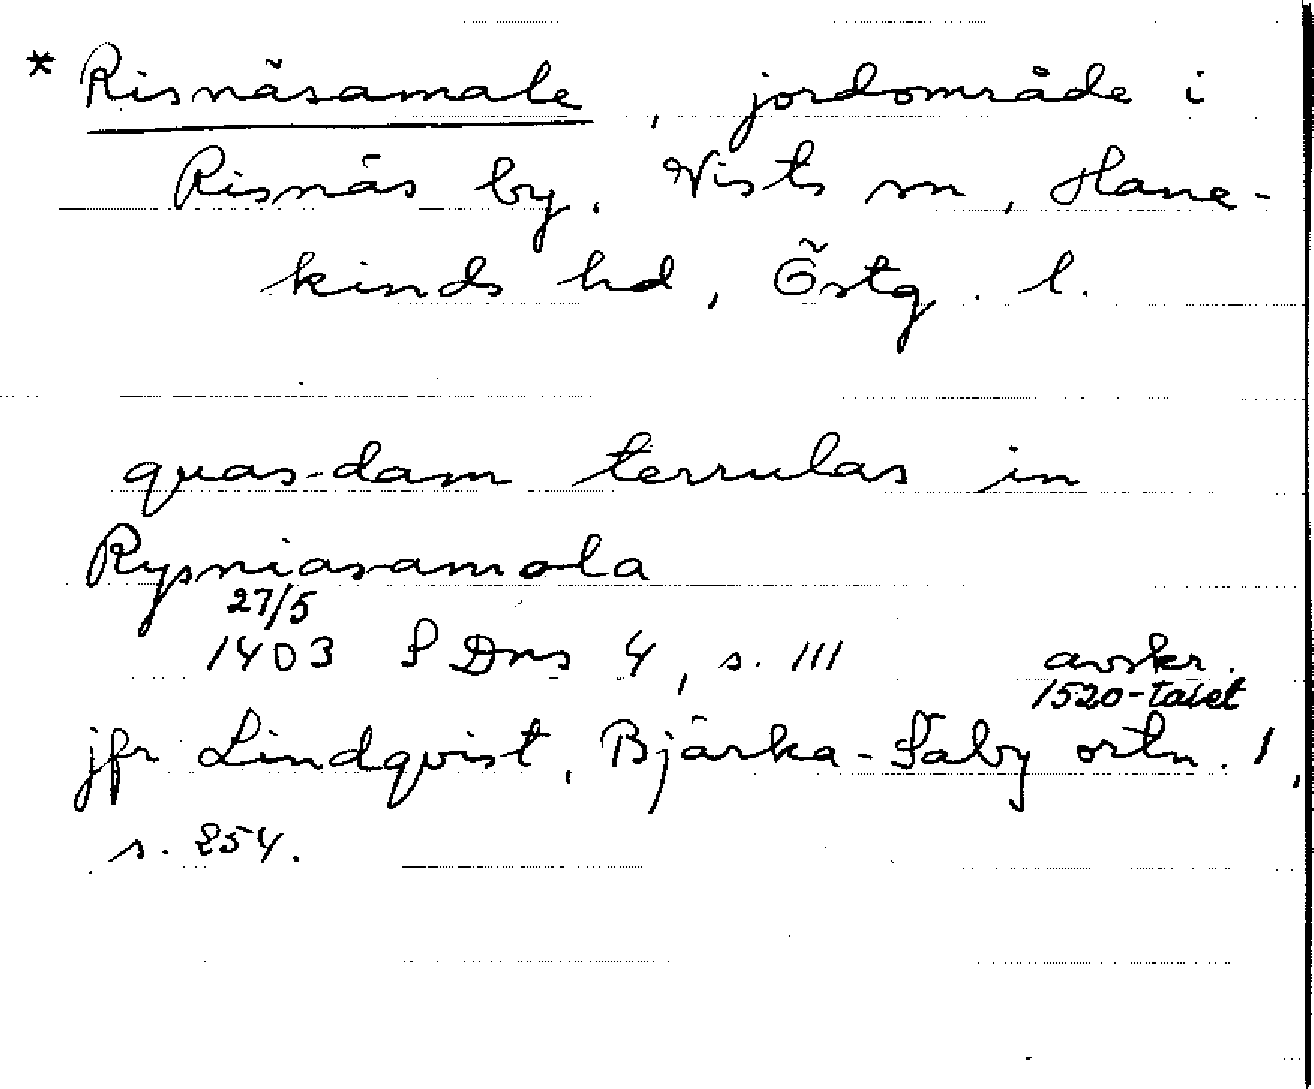 * Risnäsamåla, jordområde i
Risnäs by, Vists sn, Hane-
kinds hd, Östg. l.
quas-dam terrulas in
Rysniasamola
27/5
1403 S Dns 4, s. 111 avskr.
1520-talet
jfr Lindqvist, Bjärka-Säby ortn. 1,
s. 254.